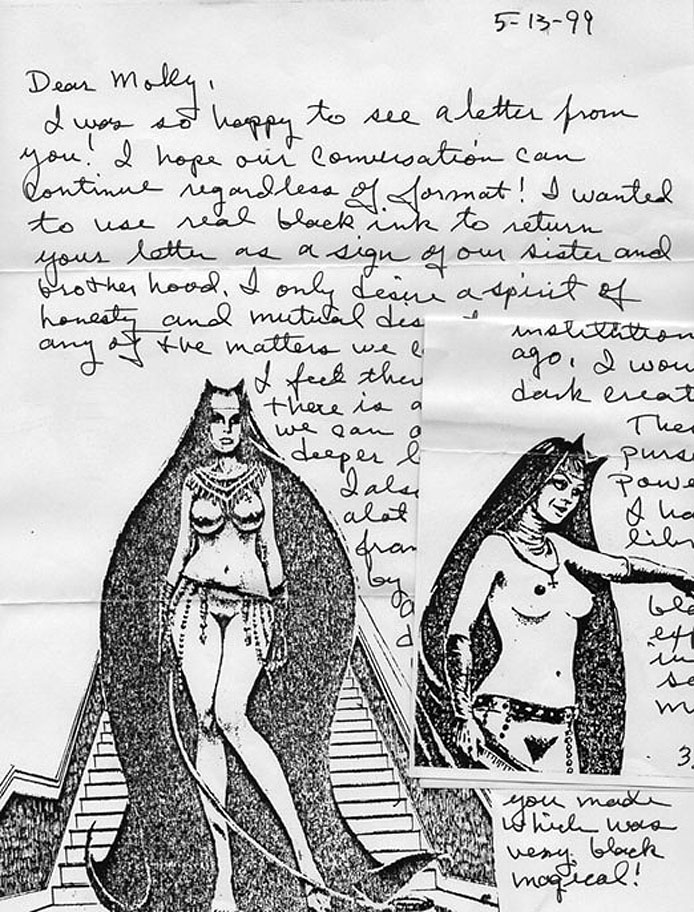 5-13-99
Dear Molly,
I was so happy to see a letter from
you! I hope our conversation can
continue regardless of format! I wanted
to use real black ink to return
your letter as a sign of our sister and
brotherhood. I only desire a spirit of
honesty and mutual
any of the matters we
I feel
there is
we can
deeper
I also
alot
by
institution
ago. I
dark
I
3.
you made
which was
very black
magical!